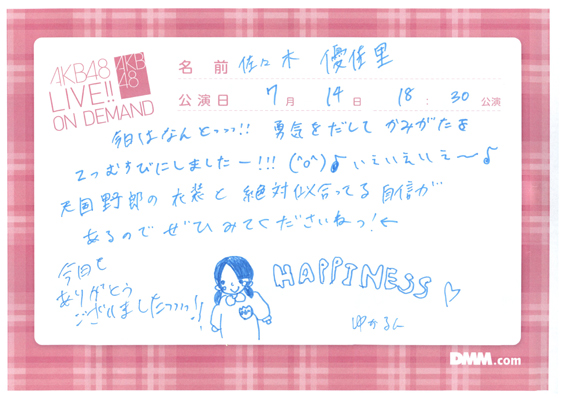 AKB48
LIVE!!
ON DEMAND
AKB
48
名 前 佐々木 優佳里
公演日 7月 14日 18:30公演
今日はなんとっっっ!! 勇気をだして かみがたを
2つむすびにしましたー!!! (^o^)♪ いぇいぇいぇ〜♪
天国野郎の衣装と 絶対似合ってる自信が
あるので ぜひみてくださいねっ!←
今回も
ありがとう
ございましたっっっ!!
HAPPINESS ♡
ゆかるん
DMM.com